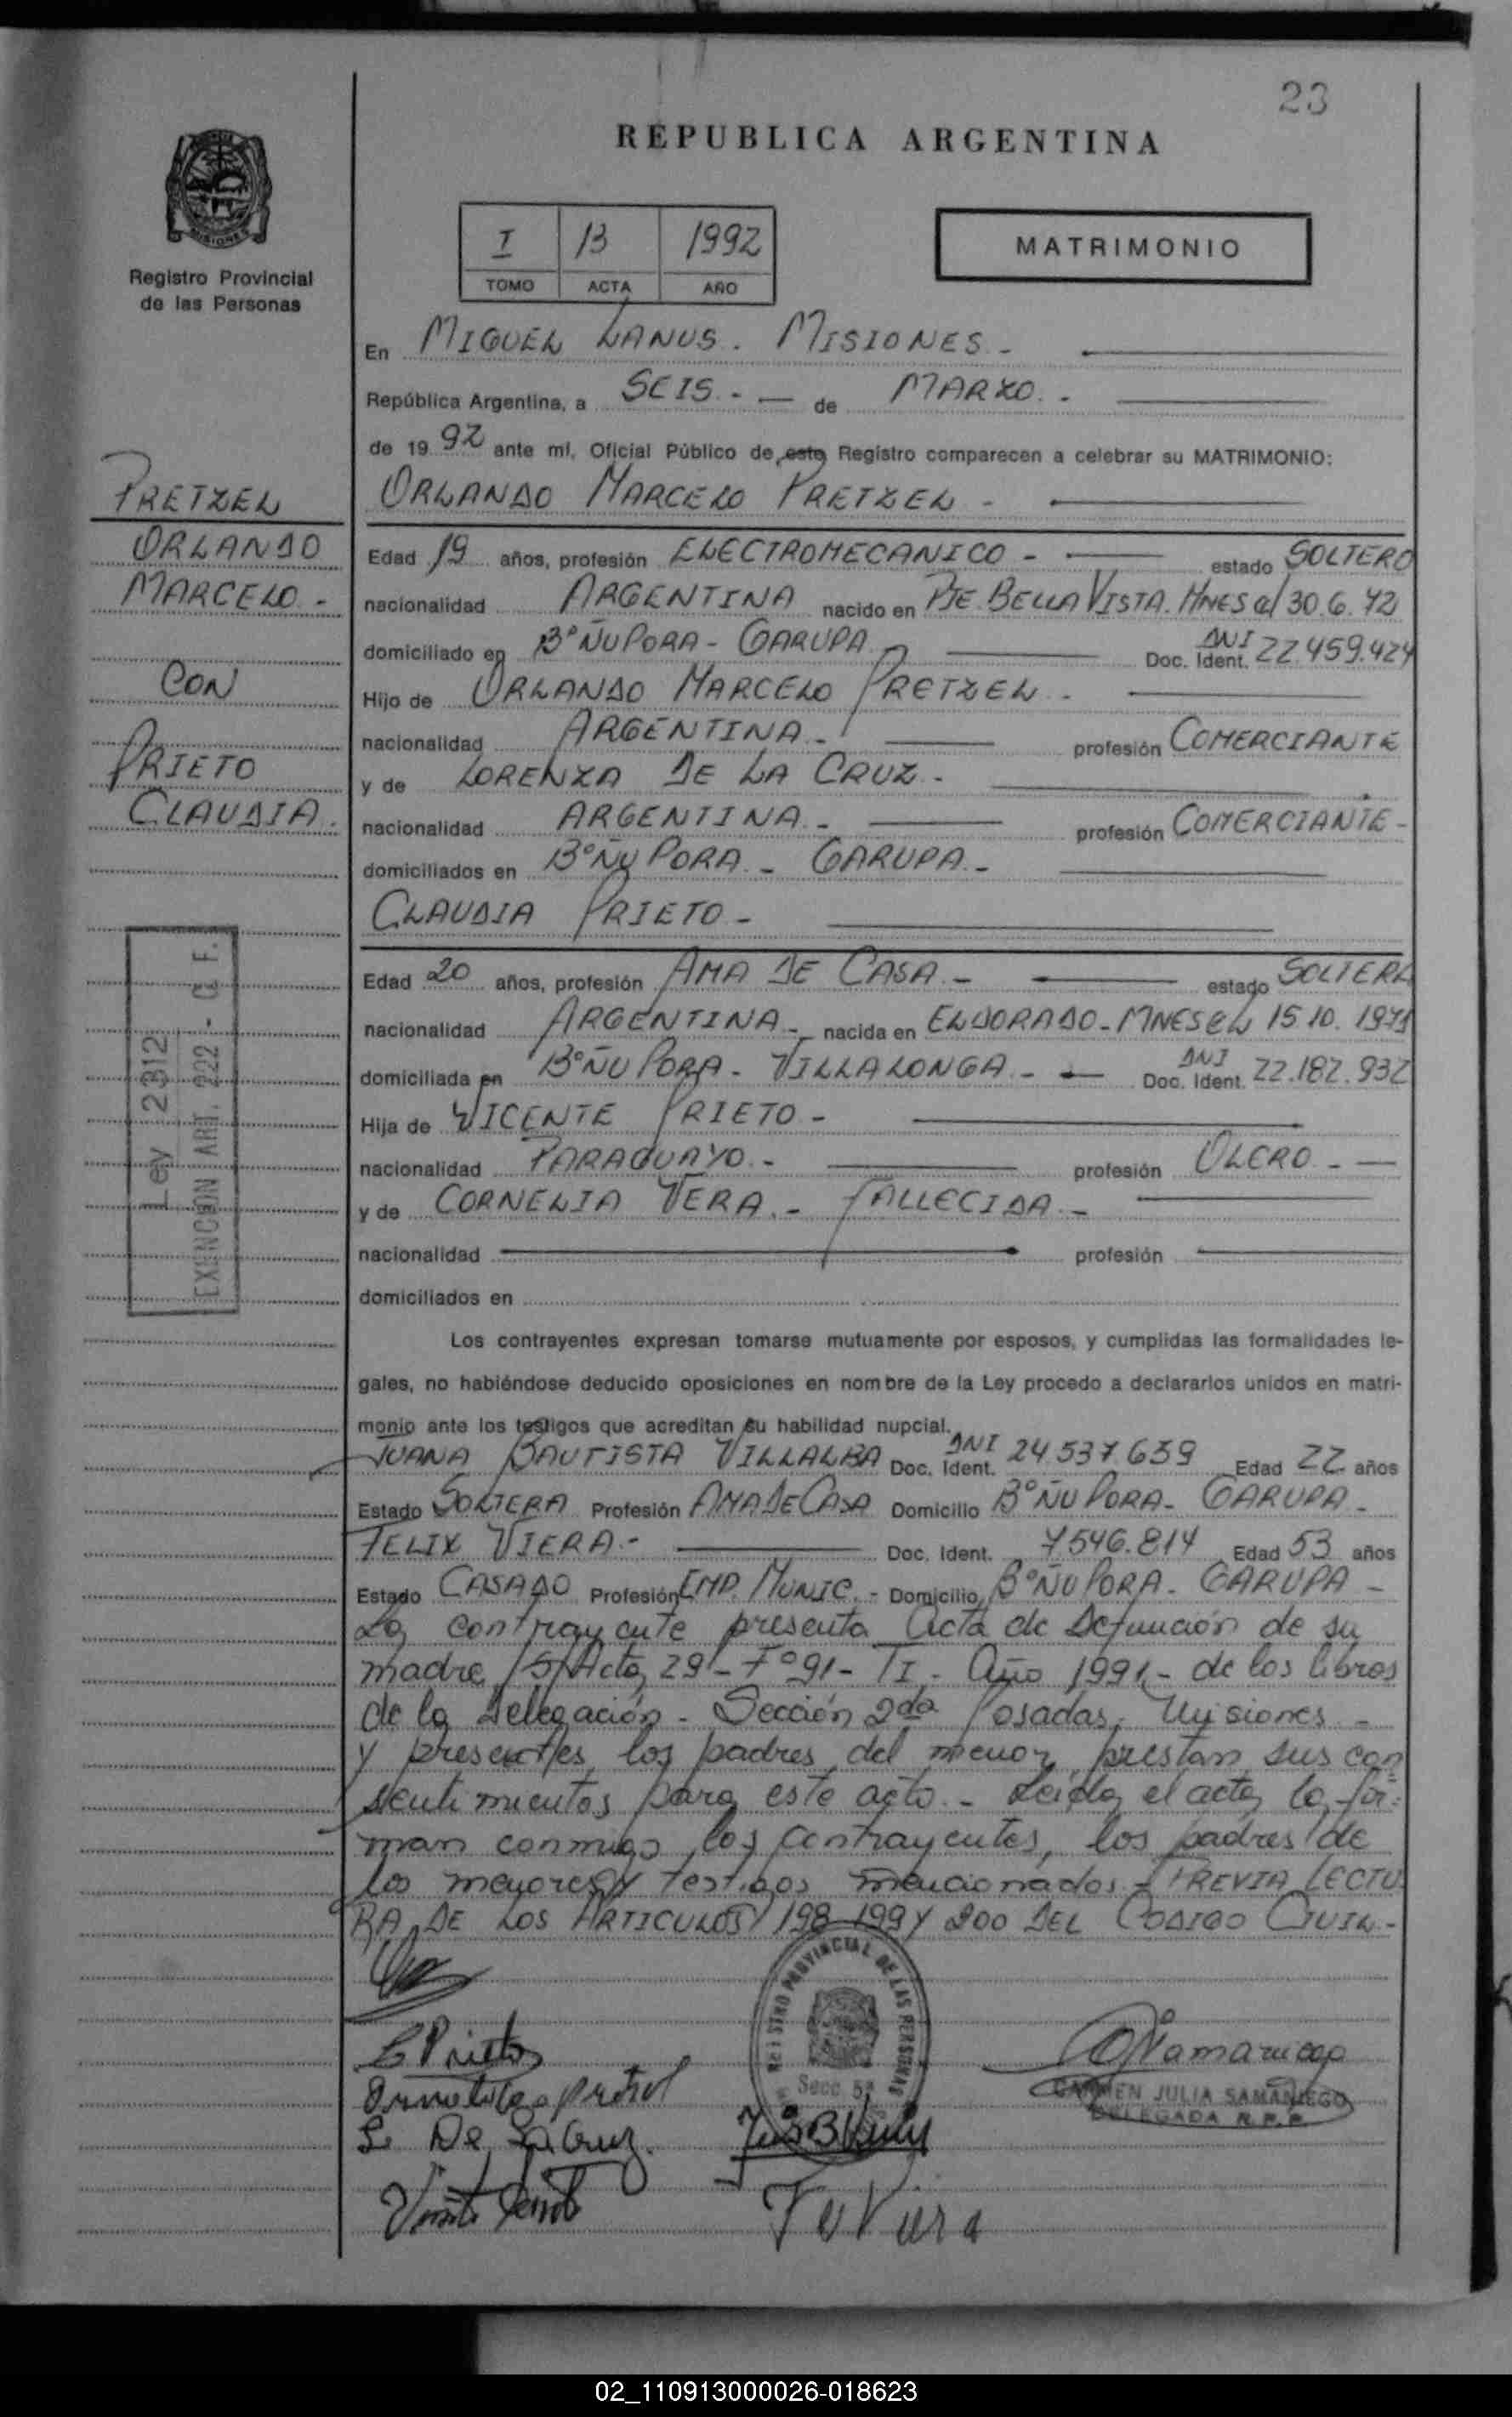 23
REPUBLICA ARGENTINA
I 13 1992
TOMO ACTA AÑO
MATRIMONIO
MISIONES
Registro Provincial
de las Personas
En MIGUEL LANUS. MISIONES.-
República Argentina, a SEIS.- de MARZO.-
de 1992 ante mí, Oficial Público de este Registro comparecen a celebrar su MATRIMONIO:
PRETZEL
ORLANDO
MARCELO.-
CON
PRIETO
CLAUDIA.
Ley 2312
EXENCION ART. 222 - C. F.
ORLANDO MARCELO PRETZEL-
Edad 19 años, profesión ELECTROMECANICO - estado SOLTERO
nacionalidad ARGENTINA nacido en PJE. BELLA VISTA. MNES el 30.6.72
domiciliado en B° ÑU PORA - GARUPA. Doc. Ident. DNI 22.459.424
Hijo de ORLANDO MARCELO PRETZEL.-
nacionalidad ARGENTINA.- profesión COMERCIANTE
y de LORENZA DE LA CRUZ.-
nacionalidad ARGENTINA.- profesión COMERCIANTE-
domiciliados en B° ÑU PORA.- GARUPA.-
CLAUDIA PRIETO-
Edad 20 años, profesión AMA DE CASA.- estado SOLTERA
nacionalidad ARGENTINA.- nacida en ELDORADO-MNES el 15.10.1971
domiciliada en B° ÑU PORA- VILLALONGA.- Doc. Ident. DNI 22.182.932
Hija de VICENTE PRIETO-
nacionalidad PARAGUAYO.- profesión OLERO.-
y de CORNELIA VERA.- FALLECIDA.-
nacionalidad profesión
domiciliados en
Los contrayentes expresan tomarse mutuamente por esposos, y cumplidas las formalidades le-
gales, no habiéndose deducido oposiciones en nombre de la Ley procedo a declararlos unidos en matri-
monio ante los testigos que acreditan su habilidad nupcial.
JUANA BAUTISTA VILLALBA Doc. Ident. DNI 24.537.639 Edad 22 años
Estado SOLTERA Profesión AMA DE CASA Domicilio B° ÑU PORA- GARUPA-
FELIX VIERA.- Doc. Ident. 7546.814 Edad 53 años
Estado CASADO Profesión EMP. MUNIC.- Domicilio B° ÑU PORA- GARUPA-
La contrayente presenta acta de Defunción de su
madre, s/Acta 29- F° 91- TI- Año 1991.- de los libros
de la Delegación - Sección 2da Posadas, Misiones.-
y presentes los padres del menor prestan sus con
sentimientos para este acto.- Leída el acta, la fir-
man conmigo los contrayentes, los padres de
los menores y testigos mencionados.- PREVIA LECTU
RA DE LOS ARTICULOS 198 199 Y 200 DEL CODIGO CIVIL.-
REGISTRO PROVINCIAL DE LAS PERSONAS
Secc. 5ª
C Prieto
L. De La Cruz.
CARMEN JULIA SAMANIEGO
DELEGADA R.P.P.
02_110913000026-018623